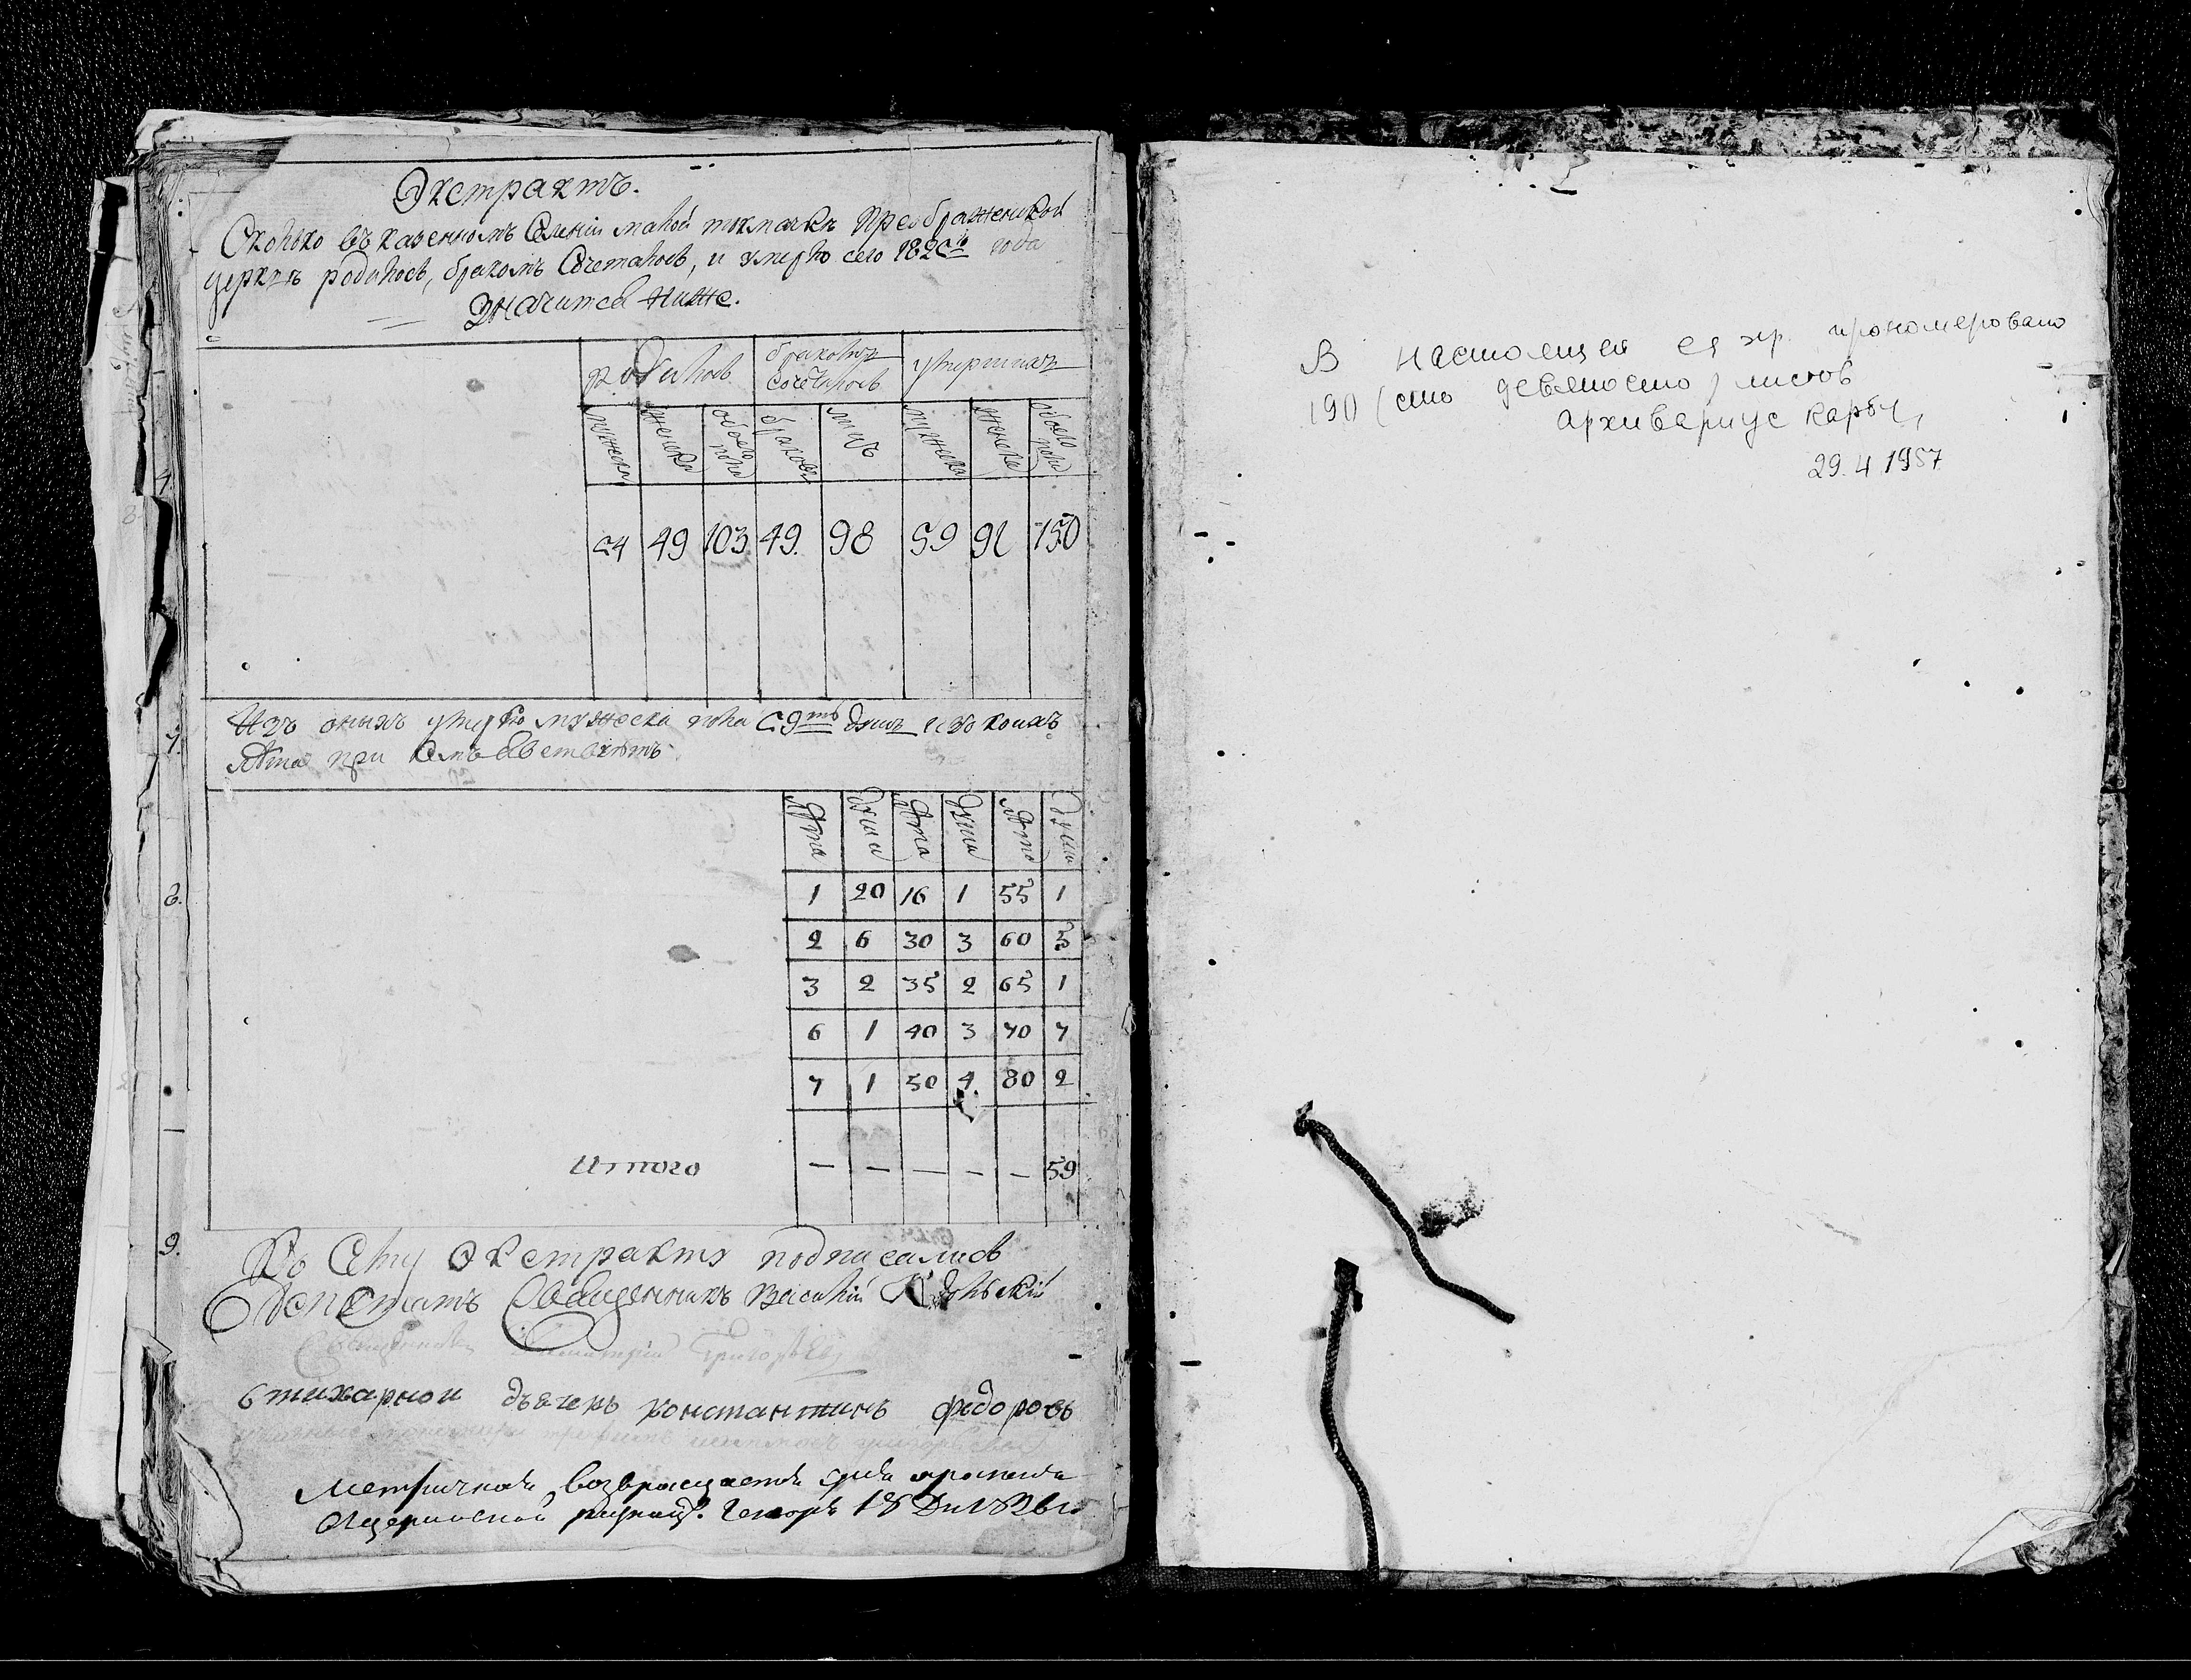 Экстрактъ.
Сколько въ казенномъ Селеніи малой токмачкѣ Преображенской
церкви родилось, бракомъ Сочеталось, и умерло сего 182 года
Значится ниже.
родилось
бракомъ
сочеталось
умершихъ
мужеска
женска
обоего
пола
браковъ
лицъ
мужеска
женска
обоего
пола
54 49 103 49. 98 59 91 150
Изъ оныхъ умерло мужеска пола 59ть душъ и во коихъ
лѣта при семъ явствуетъ.
Лѣта Души Лѣта Души Лѣта Души
1 20 16 1 55 1
2 6 30 3 60 5
3 2 35 2 65 1
6 1 40 3 70 7
7 1 50 4. 80 2
Итого — — — — — 59
Къ Сему Экстракту подписались
Депутатъ Священникъ Василій
Священникъ Димитрій Григорьевъ
стихарной дьячекъ константинъ федоровъ
Метричная возвращается
18 Дня
В настоящем ед хр. пронумеровано
190 (сто девяносто) листов
Архивариус
29.4 1957
4.
7.
8.
9.